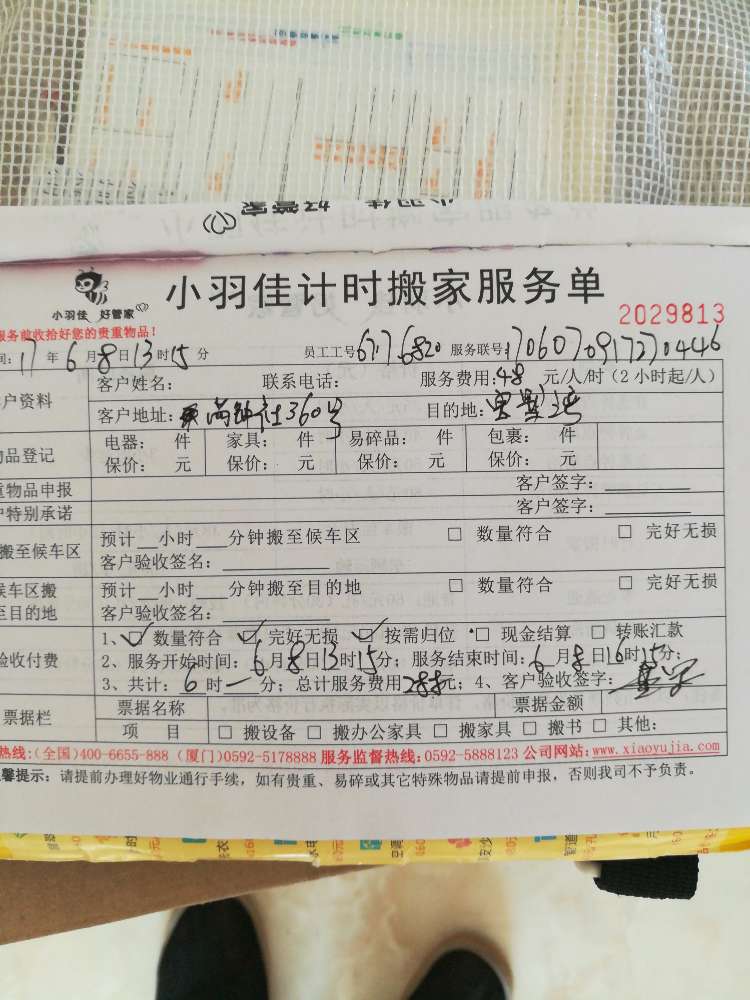 小羽佳 好管家
小羽佳计时搬家服务单
2029813
服务前收拾好您的贵重物品！
17年6月8日13时15分 员工工号6717 6820 服务联号:170607091727 0446
户资料 客户姓名: 联系电话: 服务费用:48 元/人/时(2小时起/人)
客户地址: 360号 目的地:
物品登记 电器: 件 家具: 件 易碎品: 件 包裹: 件
保价: 元 保价: 元 保价: 元 保价: 元
重物品申报 客户签字:
户特别承诺 客户签字:
搬至候车区 预计__小时___分钟搬至候车区 □ 数量符合 □ 完好无损
客户验收签名:
候车区搬至目的地 预计__小时___分钟搬至目的地 □ 数量符合 □ 完好无损
客户验收签名:
验收付费 1、☑ 数量符合 ☑ 完好无损 ☑ 按需归位 □ 现金结算 □ 转账汇款
2、服务开始时间: 6月8日13时15分; 服务结束时间: 6月8日16时15分;
3、共计: 6时一分; 总计服务费用288元; 4、客户验收签字:
票据栏 票据名称 票据金额
项 目 □ 搬设备 □ 搬办公家具 □ 搬家具 □ 搬书 □ 其他:
热线:(全国)400-6655-888 (厦门)0592-5178888 服务监督热线:0592-5888123 公司网站:www.xiaoyujia.com
馨提示: 请提前办理好物业通行手续，如有贵重、易碎或其它特殊物品请提前申报，否则我司不予负责。